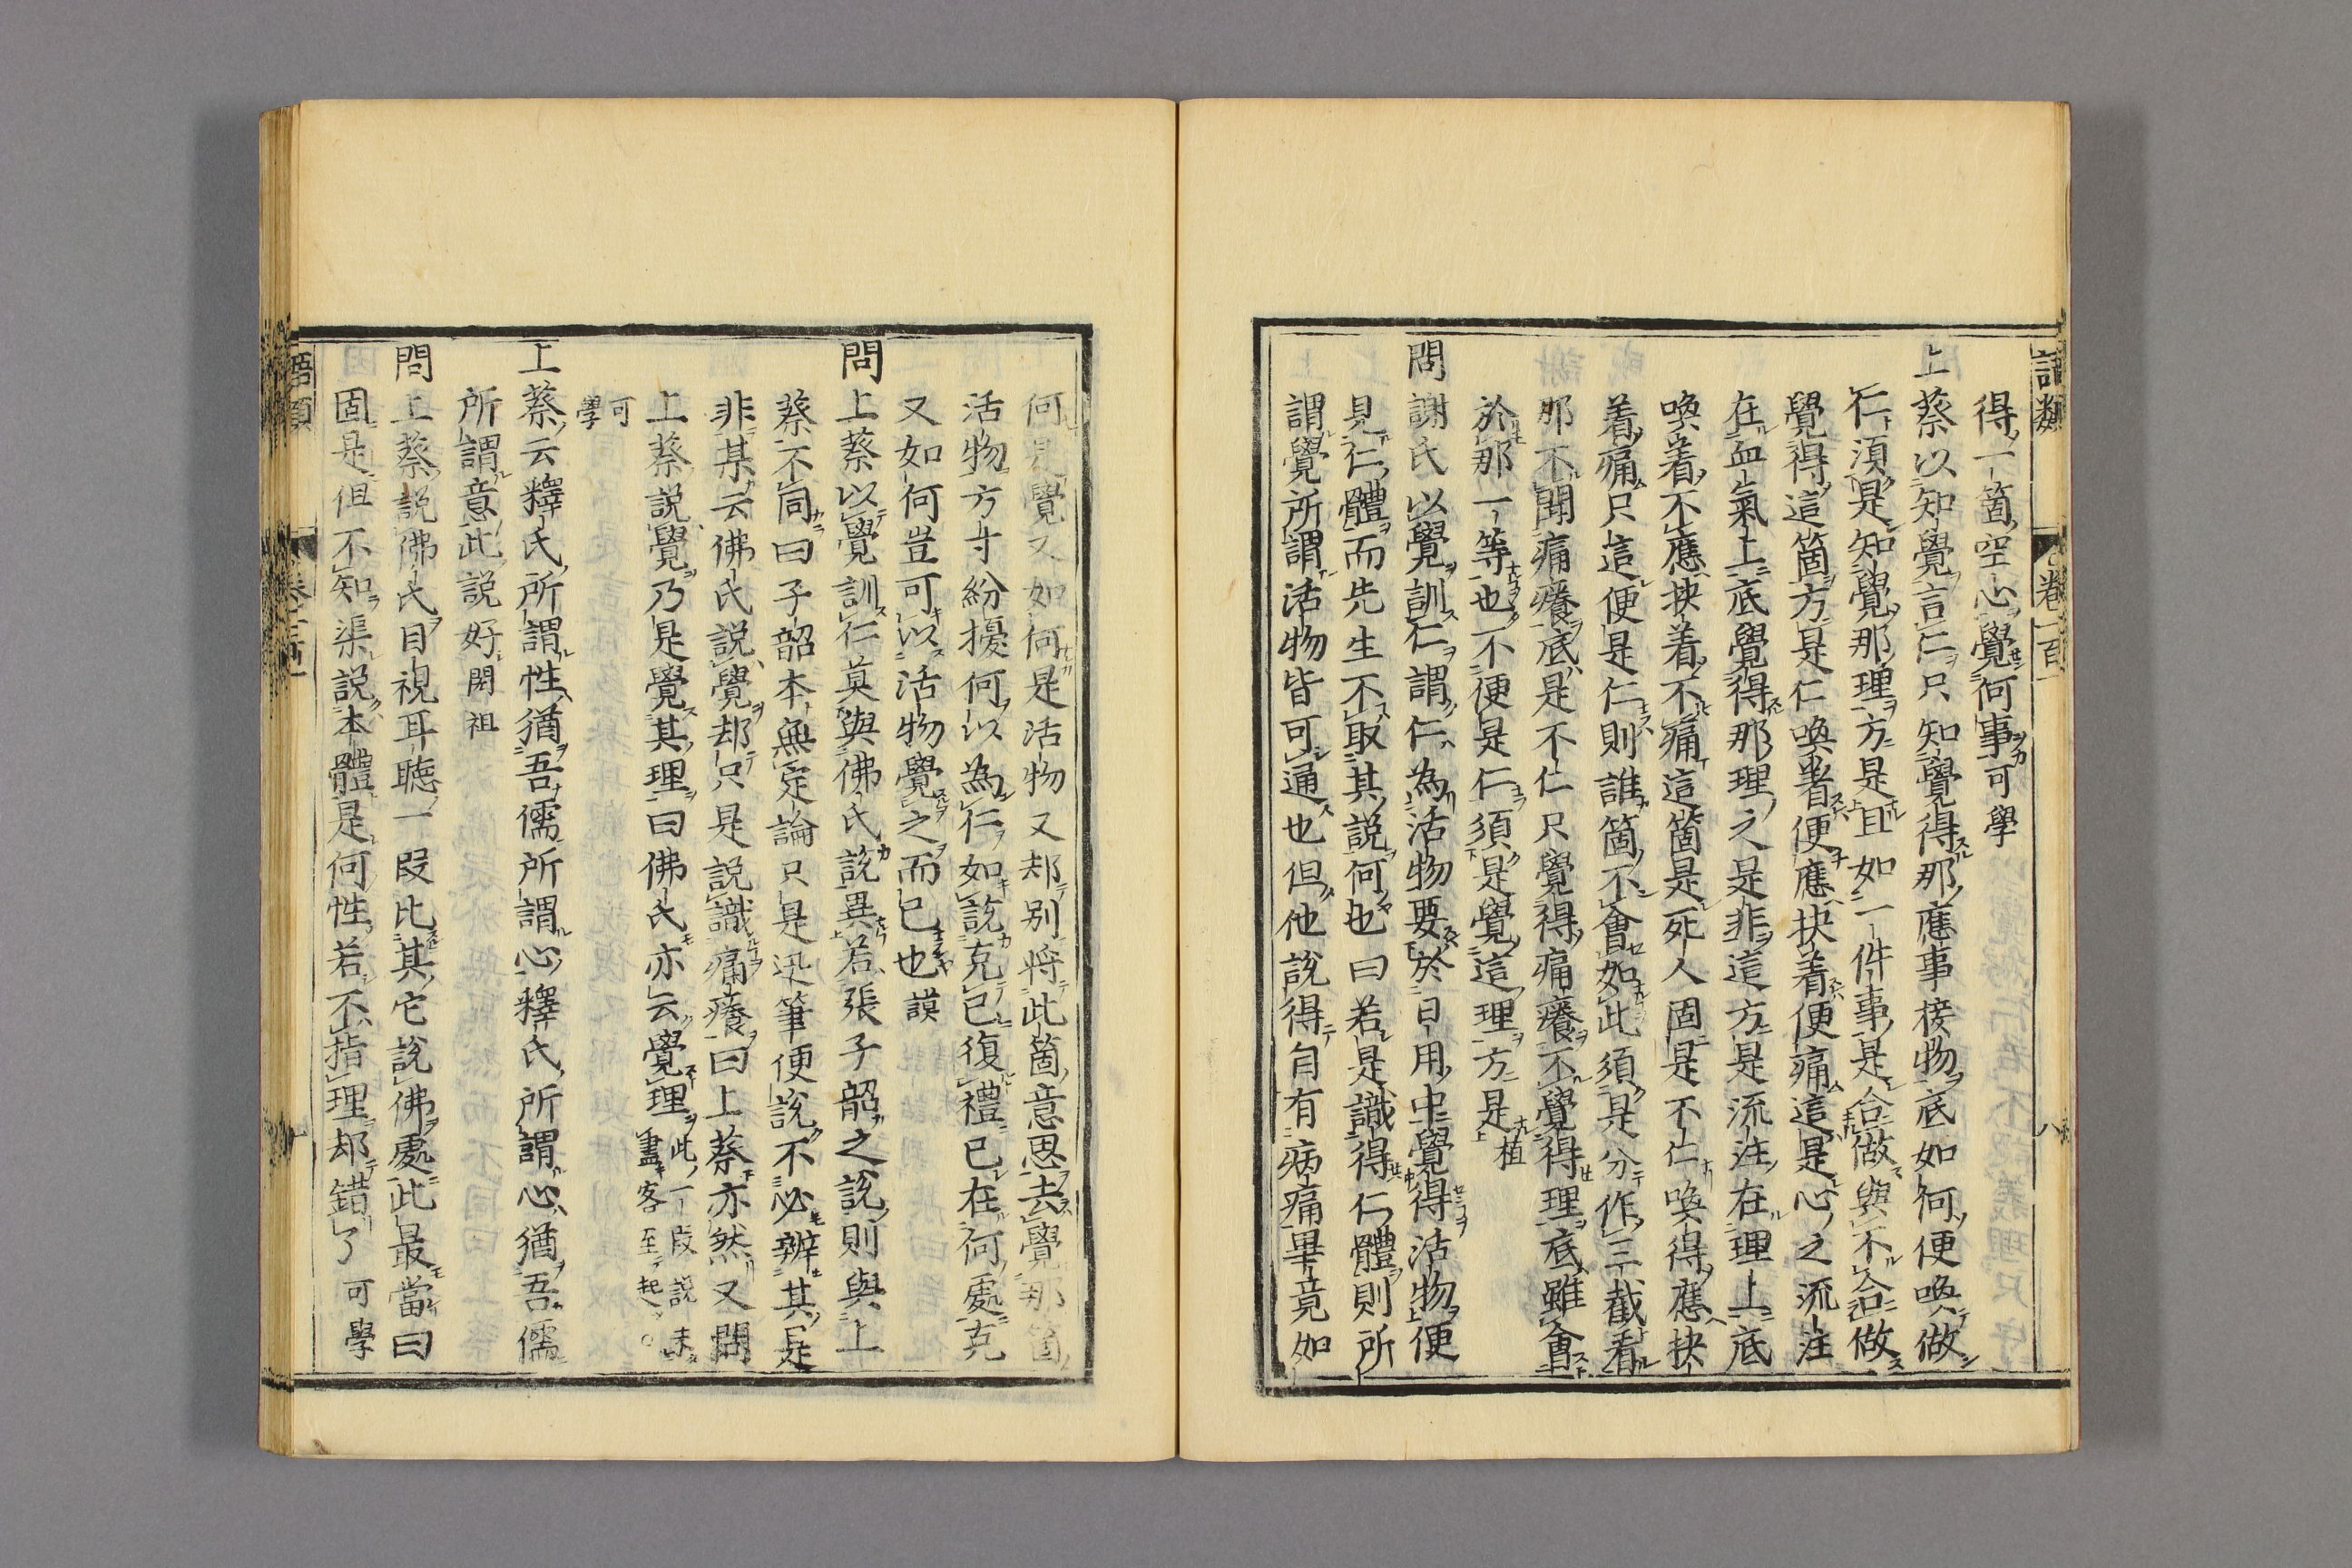 語類
卷一百一
八
得一箇空心覺何事可學
上蔡以知覺言仁只知覺得那應事接物底如何便喚做
仁須是知覺那理方是且如一件事是合做與不合做
覺得這箇方是仁喚著便應抉着便痛這是心之流注
在血氣上底覺得那理之是非這方是流注在理上底
喚着不應抉着不痛這箇是死人固是不仁喚得應抉
着痛只這便是仁則誰箇不會如此須是分作三截看
那不聞痛癢底是不仁只覺得痛癢不覺得理底雖會
於那一等也不便是仁須是覺這理方是植
問謝氏以覺訓仁謂仁為活物要於日用中覺得活物便
見仁體而先生不取其說何也曰若是識得仁體則所
謂覺所謂活物皆可通也但他說得自有病痛畢竟如
何是覺又如何是活物又却別將此箇意思去覺那箇
活物方寸紛擾何以為仁如說克已復禮已在何處克
又如何豈可以活物覺之而已也謨
問上蔡以覺訓仁莫與佛氏說異若張子韶之說則與上
蔡不同曰子韶本無定論只是迅筆便說不必辨其是
非某云佛氏說覺却只是說識痛癢曰上蔡亦然又問
上蔡說覺乃是覺其理曰佛氏亦云覺理此一段說未
盡客至起○
可
學
上蔡云釋氏所謂性猶吾儒所謂心釋氏所謂心猶吾儒
所謂意此說好閎祖
問上蔡說佛氏目視耳聽一段比其它說佛處此最當曰
固是但不知渠說本體是何性若不指理却錯了可學
語類